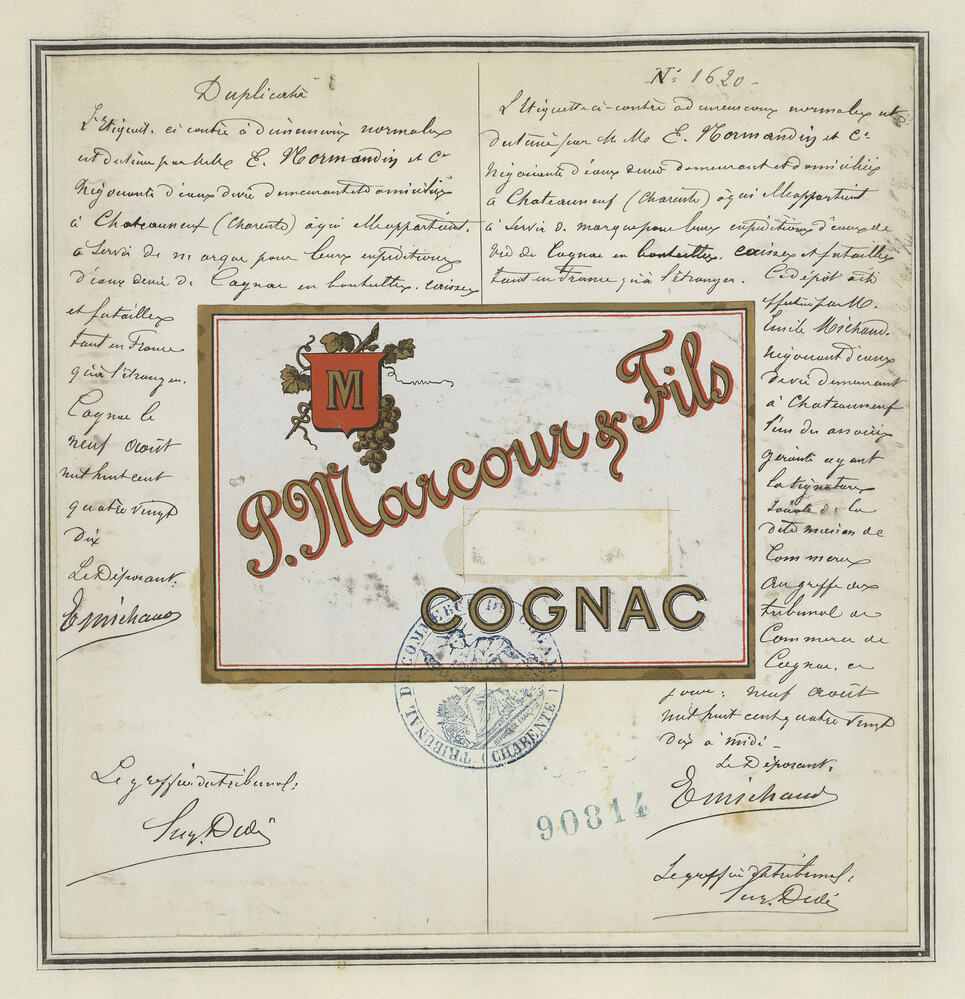 Duplicata
L'Etiquet. ci contre à dimensions normales
est détenue par M.M. E. Normandin et Cie
Négociants d'eaux devie demeurant et domiciliés
à Chateauneuf (Charente) à qui elle appartient.
à servi de marque pour leurs expéditions
d'eaux devie de Cognac en bouteilles, caisses
et futailles
tant en France
qu'à l'étranger.
Cognac le
neuf Août
mil huit cent
quatre vingt
dix
Le Déposant:
E michaud
Le greffier du tribunal:
Dédé
N: 1620-
L'Etiquette ci-contre à dimensions normales est
détenue par M M E. Normandin et Cie
Négociants d'eaux devie demeurant et domiciliés
à Chateauneuf (Charente) à qui elle appartient
à servir de marque pour leurs expéditions d'eaux de
vie de Cognac en bouteilles, caisses et futailles
tant en France qu'à l'étranger. Ce dépôt a été
effectué par M.
Emile Michaud.
Négociant d'eaux
devie demeurant
à Chateauneuf
l'un des associés
gérants ayant
la signature
sociale de la
dite maison de
Commerce
Au greffe du
tribunal de
Commerce de
Cognac, ce
jour: neuf Août
mil huit cent quatre vingt
dix à midi -
Le Déposant:
E michaud
Le greffier du tribunal:
Dédé
M
P. Marcour & Fils
COGNAC
TRIBUNAL DE COMMERCE DE COGNAC
(CHARENTE)
90814